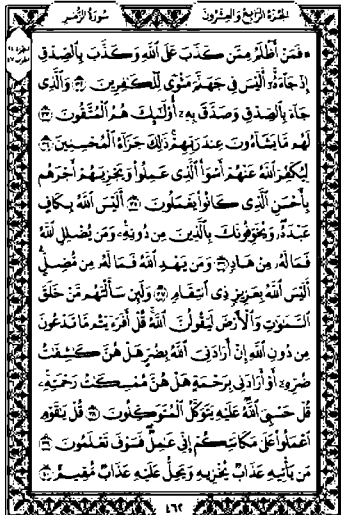 الجزء الرابع والعشرون سورة الزمر
۞ فَمَنْ أَظْلَمُ مِمَّن كَذَبَ عَلَى ٱللَّهِ وَكَذَّبَ بِٱلصِّدْقِ
إِذْ جَآءَهُۥٓ أَلَيْسَ فِى جَهَنَّمَ مَثْوًى لِّلْكَٰفِرِينَ ٣٢ وَٱلَّذِى
جَآءَ بِٱلصِّدْقِ وَصَدَّقَ بِهِۦٓ أُو۟لَٰٓئِكَ هُمُ ٱلْمُتَّقُونَ ٣٣
لَهُم مَّا يَشَآءُونَ عِندَ رَبِّهِمْ ذَٰلِكَ جَزَآءُ ٱلْمُحْسِنِينَ ٣٤
لِيُكَفِّرَ ٱللَّهُ عَنْهُمْ أَسْوَأَ ٱلَّذِى عَمِلُوا۟ وَيَجْزِيَهُمْ أَجْرَهُم
بِأَحْسَنِ ٱلَّذِى كَانُوا۟ يَعْمَلُونَ ٣٥ أَلَيْسَ ٱللَّهُ بِكَافٍ
عَبْدَهُۥ وَيُخَوِّفُونَكَ بِٱلَّذِينَ مِن دُونِهِۦ وَمَن يُضْلِلِ ٱللَّهُ
فَمَا لَهُۥ مِنْ هَادٍ ٣٦ وَمَن يَهْدِ ٱللَّهُ فَمَا لَهُۥ مِن مُّضِلٍّ
أَلَيْسَ ٱللَّهُ بِعَزِيزٍ ذِى ٱنتِقَامٍ ٣٧ وَلَئِن سَأَلْتَهُم مَّنْ خَلَقَ
ٱلسَّمَٰوَٰتِ وَٱلْأَرْضَ لَيَقُولُنَّ ٱللَّهُ قُلْ أَفَرَءَيْتُم مَّا تَدْعُونَ
مِن دُونِ ٱللَّهِ إِنْ أَرَادَنِىَ ٱللَّهُ بِضُرٍّ هَلْ هُنَّ كَٰشِفَٰتُ
ضُرِّهِۦٓ أَوْ أَرَادَنِى بِرَحْمَةٍ هَلْ هُنَّ مُمْسِكَٰتُ رَحْمَتِهِۦ
قُلْ حَسْبِىَ ٱللَّهُ عَلَيْهِ يَتَوَكَّلُ ٱلْمُتَوَكِّلُونَ ٣٨ قُلْ يَٰقَوْمِ
ٱعْمَلُوا۟ عَلَىٰ مَكَانَتِكُمْ إِنِّى عَٰمِلٌ فَسَوْفَ تَعْلَمُونَ ٣٩
مَن يَأْتِيهِ عَذَابٌ يُخْزِيهِ وَيَحِلُّ عَلَيْهِ عَذَابٌ مُّقِيمٌ ٤٠
٤٦٢